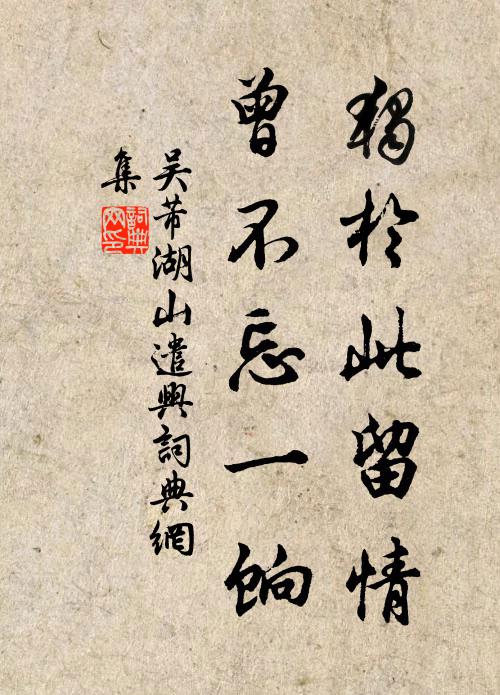 獨於此留情
曾不忘一餉
吴芾湖山遣興詞典網
集
詞典
网印